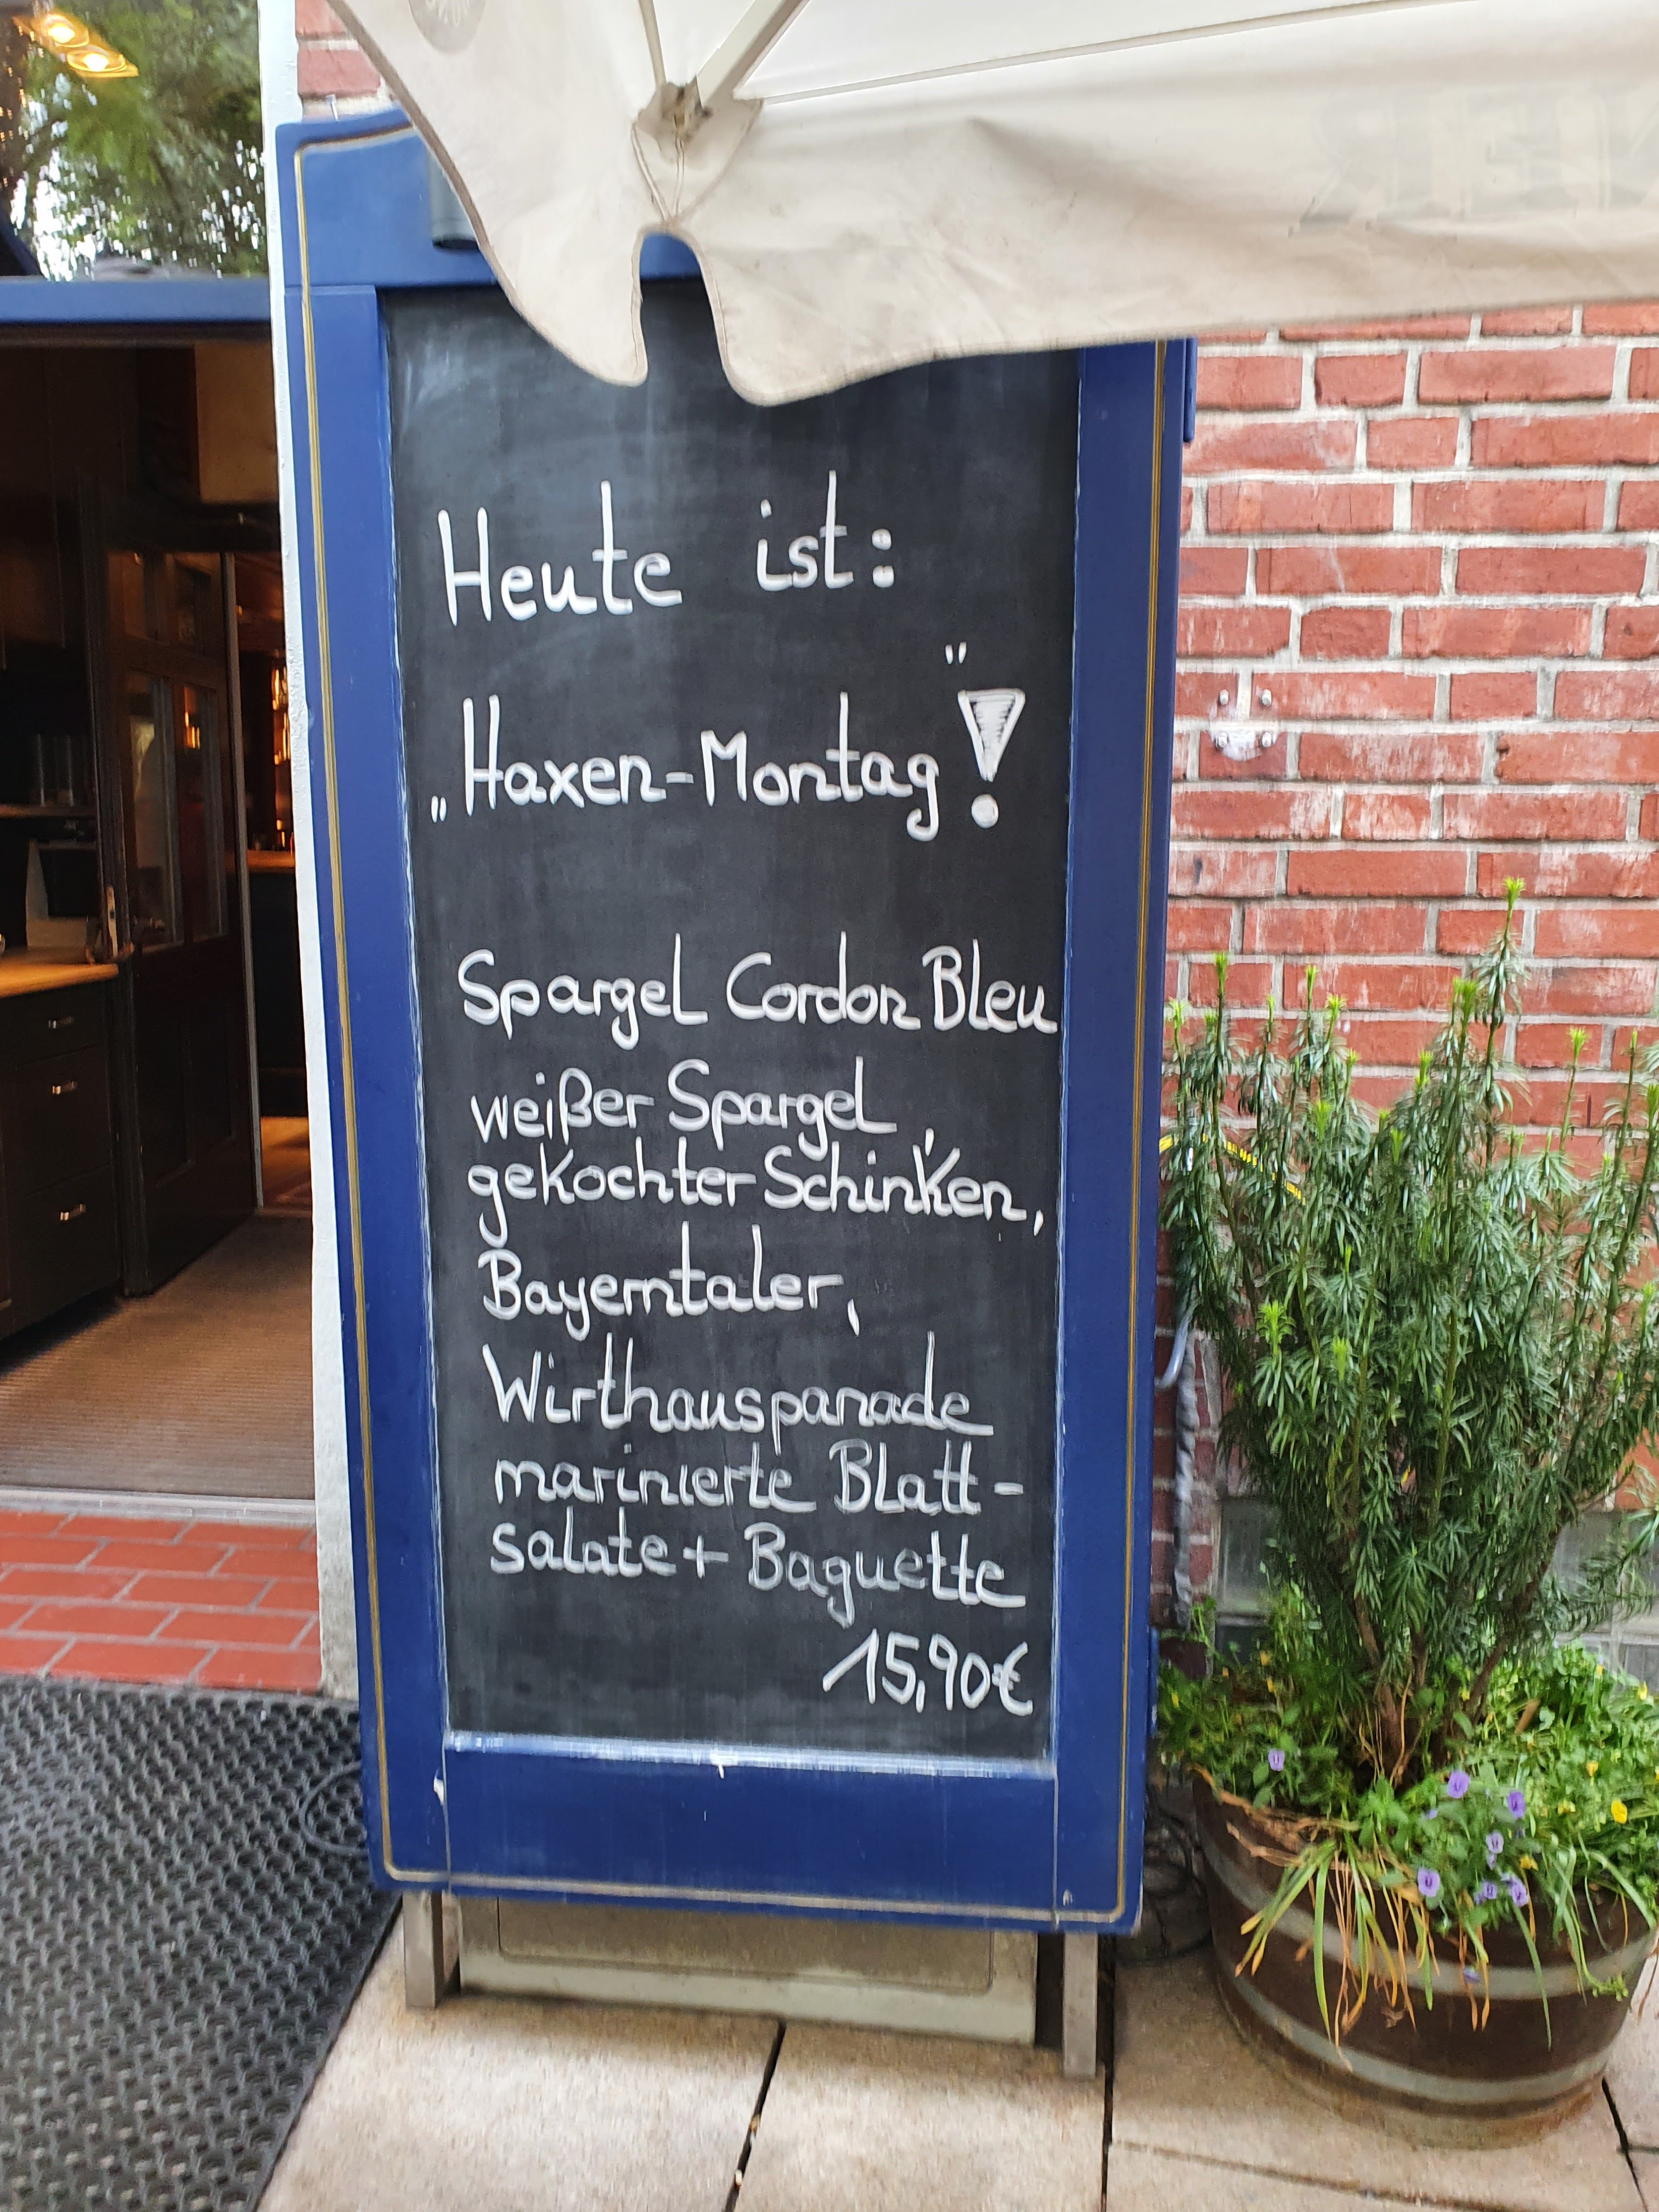 Heute ist:
„Haxen-Montag"!
Spargel Cordon Bleu
weißer Spargel,
gekochter Schinken,
Bayerntaler,
Wirthauspanade
marinierte Blatt-
salate + Baguette
15,90€